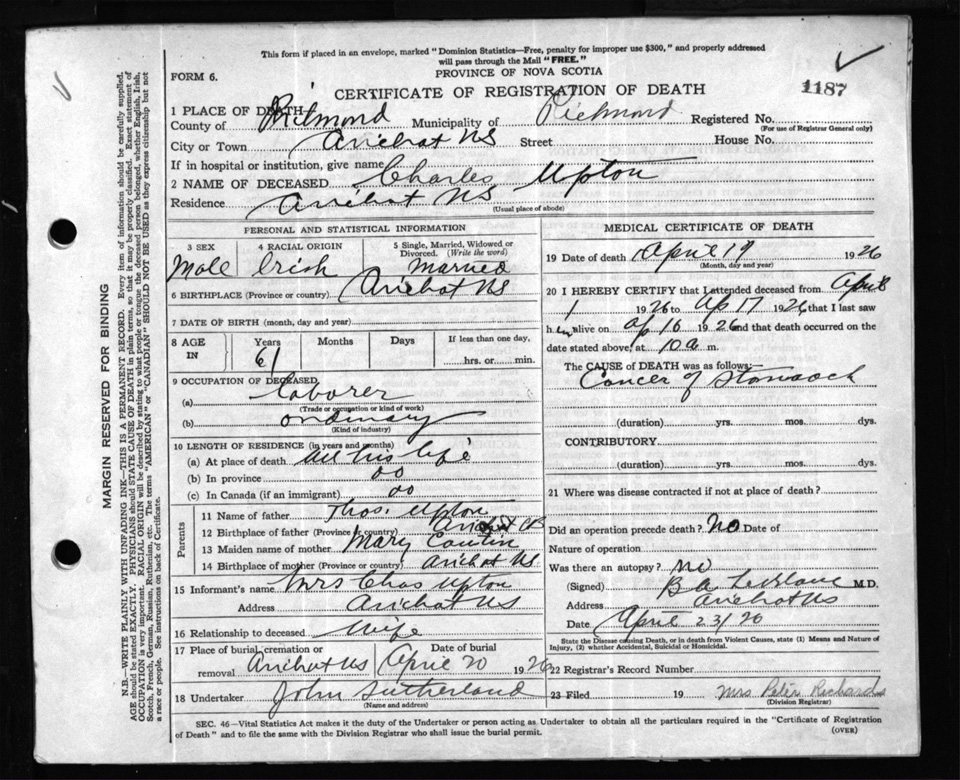 This form if placed in an envelope, marked "Dominion Statistics—Free, penalty for improper use $300," and properly addressed
will pass through the Mail "FREE."
PROVINCE OF NOVA SCOTIA
FORM 6.
CERTIFICATE OF REGISTRATION OF DEATH
1187
1 PLACE OF DEATH
County of Richmond Municipality of Richmond Registered No.
(For use of Registrar General only)
City or Town Arichat NS Street House No.
If in hospital or institution, give name
2 NAME OF DECEASED Charles Upton
Residence Arichat NS
(Usual place of abode)
PERSONAL AND STATISTICAL INFORMATION
3 SEX 4 RACIAL ORIGIN 5 Single, Married, Widowed or Divorced. (Write the word)
Male Irish Married
6 BIRTHPLACE (Province or country) Arichat NS
7 DATE OF BIRTH (month, day and year)
8 AGE IN Years Months Days If less than one day,
61 hrs. or min.
9 OCCUPATION OF DECEASED
(a) Laborer
(Trade or occupation or kind of work)
(b) ordinary
(Kind of industry)
10 LENGTH OF RESIDENCE (in years and months)
(a) At place of death All his life
(b) In province
(c) In Canada (if an immigrant)
Parents
11 Name of father Thos. Upton
12 Birthplace of father (Province or country) Arichat CB
13 Maiden name of mother Mary
14 Birthplace of mother (Province or country) Arichat NS
15 Informant's name Mrs Chas Upton
Address Arichat NS
16 Relationship to deceased Wife
17 Place of burial, cremation or Date of burial
Arichat NS April 20 1926
18 Undertaker John Sutherland
(Name and address)
MEDICAL CERTIFICATE OF DEATH
19 Date of death April 19 1926
(Month, day and year)
20 I HEREBY CERTIFY that I attended deceased from April
1 1926 to Ap 17 1926 that I last saw
him alive on Ap 16 1926 and that death occurred on the
date stated above, at 10 a m.
The CAUSE of DEATH was as follows:
Cancer of Stomach
(duration) yrs. mos. dys.
CONTRIBUTORY
(duration) yrs. mos. dys.
21 Where was disease contracted if not at place of death?
Did an operation precede death? No Date of
Nature of operation
Was there an autopsy? No
(Signed) B A LeBlanc M.D.
Address Arichat NS
Date April 23/26
State the Disease causing Death, or in death from Violent Causes, state (1) Means and Nature of
Injury, (2) whether Accidental, Suicidal or Homicidal.
22 Registrar's Record Number
23 Filed 19 Mrs Peter Richard
(Division Registrar)
SEC. 46—Vital Statistics Act makes it the duty of the Undertaker or person acting as Undertaker to obtain all the particulars required in the "Certificate of Registration
of Death" and to file the same with the Division Registrar who shall issue the burial permit.
(OVER)
MARGIN RESERVED FOR BINDING
N.B.—WRITE PLAINLY WITH UNFADING INK—THIS IS A PERMANENT RECORD. Every item of information should be carefully supplied.
AGE should be stated EXACTLY. PHYSICIANS should STATE CAUSE OF DEATH in plain terms, so that it may be properly classified. Exact statement of
OCCUPATION is very important. RACIAL ORIGIN will be described by stating to what people or tongue the deceased person belonged, whether English, Irish,
Scotch, French, German, Russian, Ruthenian, etc. The terms "AMERICAN" or "CANADIAN" SHOULD NOT BE USED as they express citizenship but not
a race or people. See instructions on back of Certificate.